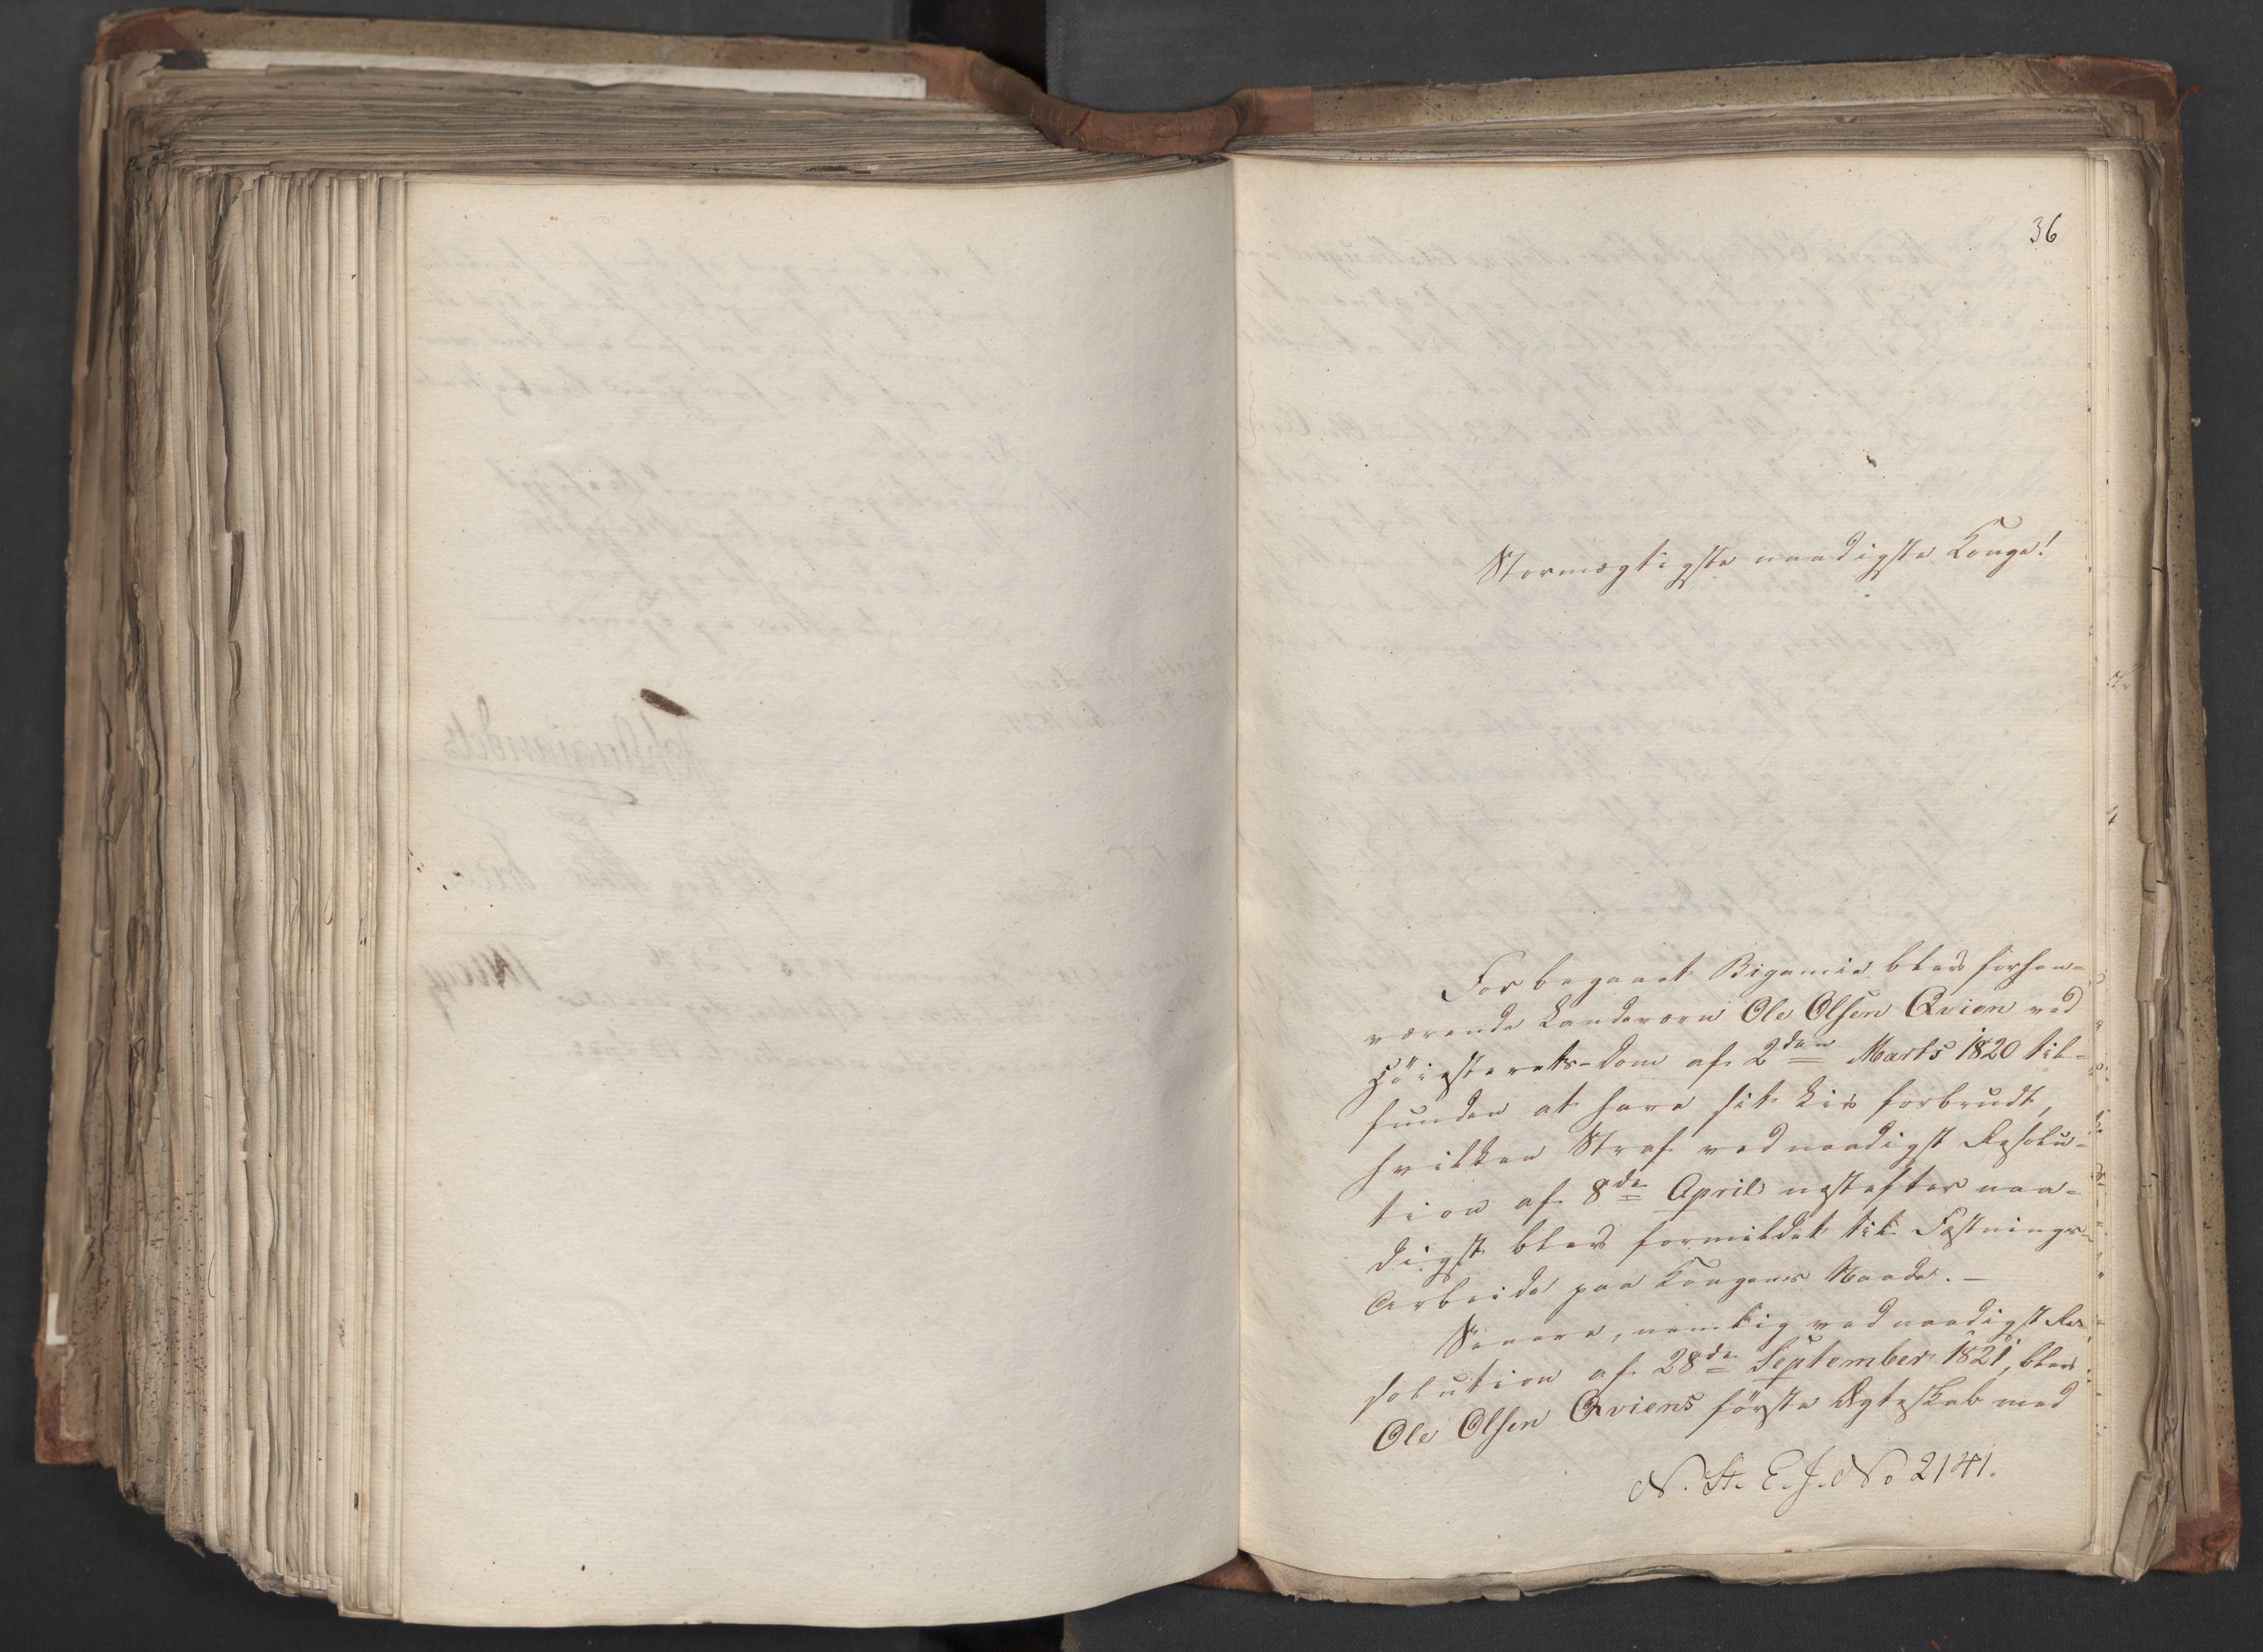 36
Stormægtigste naadigste Konge!
For begaaet Bigamie blev forhen-
værende Landværn Ole Olsen Qvien ved
Höiesterets-Dom af 2den Marts 1820 til-
funden at have sit Liv forbrudt,
hvilken Straf ved naadigst Resolu-
tion af 8de April næstefter naa-
digst blev formildet til Fæstnings-
Arbeide paa Kongens Naade. —
Senere, nemlig ved naadigst Re-
solution af 28de September 1821, blev
Ole Olsen Qviens förste Ægteskab med
N. St. E. J. No 2141.